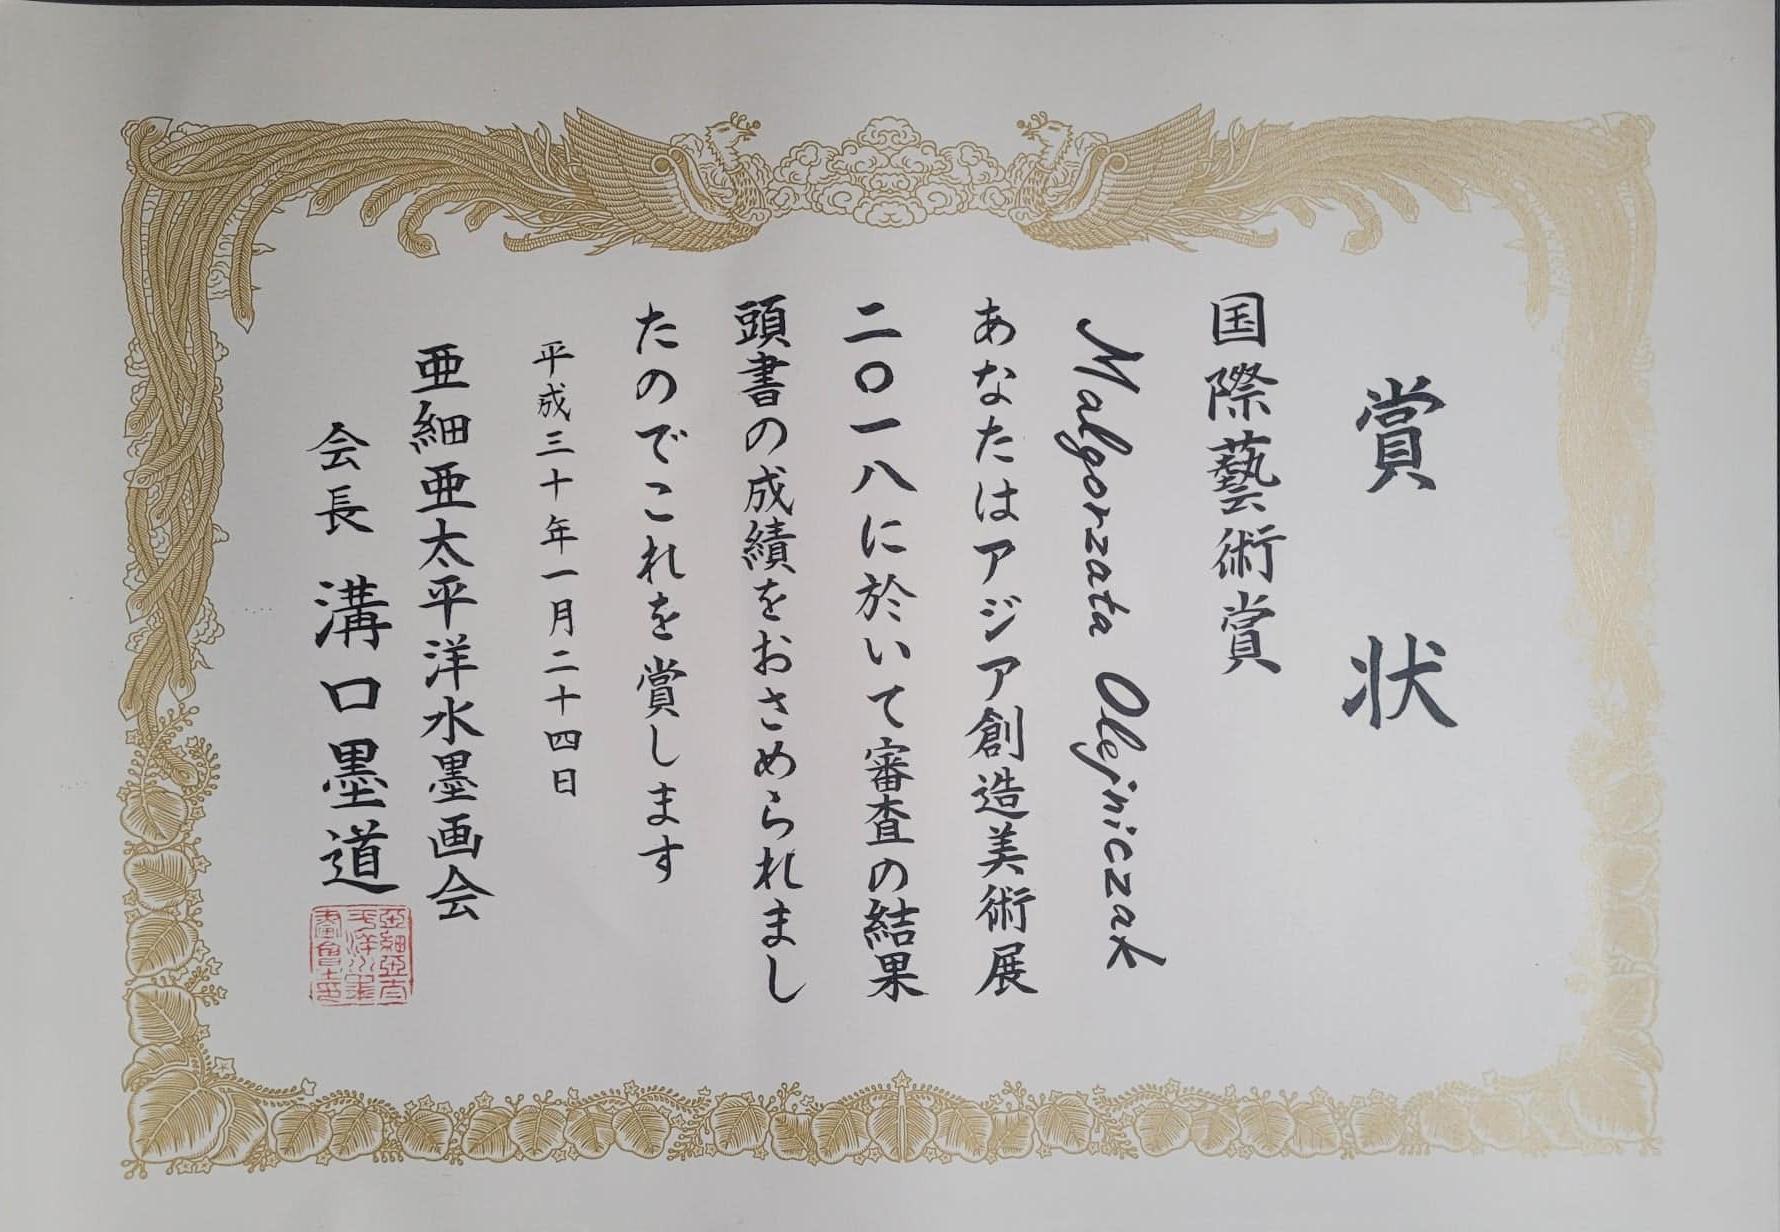 賞状
国際藝術賞
Malgorzata Olejniczak
あなたはアジア創造美術展
二〇一八に於いて審査の結果
頭書の成績をおさめられまし
たのでこれを賞します
平成三十年一月二十四日
亜細亜太平洋水墨画会
会長 溝口墨道